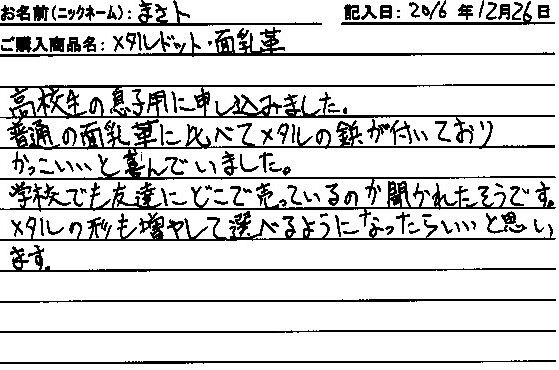 お名前(ニックネーム): まさト 記入日: 2016 年 12月 26日
ご購入商品名: メタルドット・面乳革
高校生の息子用に申し込みました。
普通の面乳革に比べてメタルの鋲が付いており
かっこいいと喜んでいました。
学校でも友達にどこで売っているのか聞かれたそうです。
メタルの形も増やして選べるようになったらいいと思い
ます。